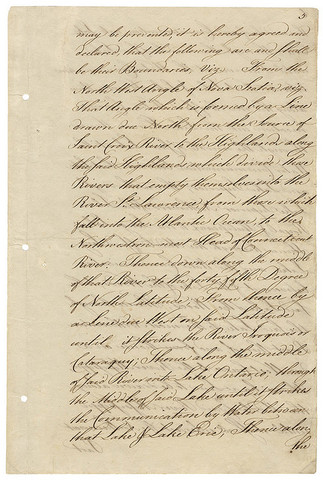 3
may be prevented, it is hereby agreed and
declared that the following are and shall
be their Boundaries, Viz. From the
North West Angle of Nova Scotia, viz.
That Angle which is formed by a Line
drawn due North from the Source of
Saint Croix River to the Highlands along
the said Highlands which divide those
Rivers that empty themselves into the
River St. Lawrence, from those which
fall into the Atlantic Ocean, to the
Northwestern most Head of Connecticut
River: Thence down along the middle
of that River to the forty fifth Degree
of North Latitude; From thence by
a Line due West on said Latitude
until it strikes the River Iroquois or
Cataraquy; Thence along the middle
of said River into Lake Ontario; through
the Middle of said Lake until it strikes
the Communication by Water between
that Lake & Lake Erie; Thence along
the